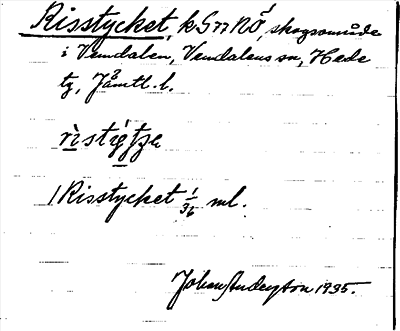 Risstycket, k S77 NÖ, skogsområde
i Vemdalen, Vemdalens sn, Hede
tg, Jämtl. l.
Risstycket 1/36 ml.
Johan Anderson 1935.